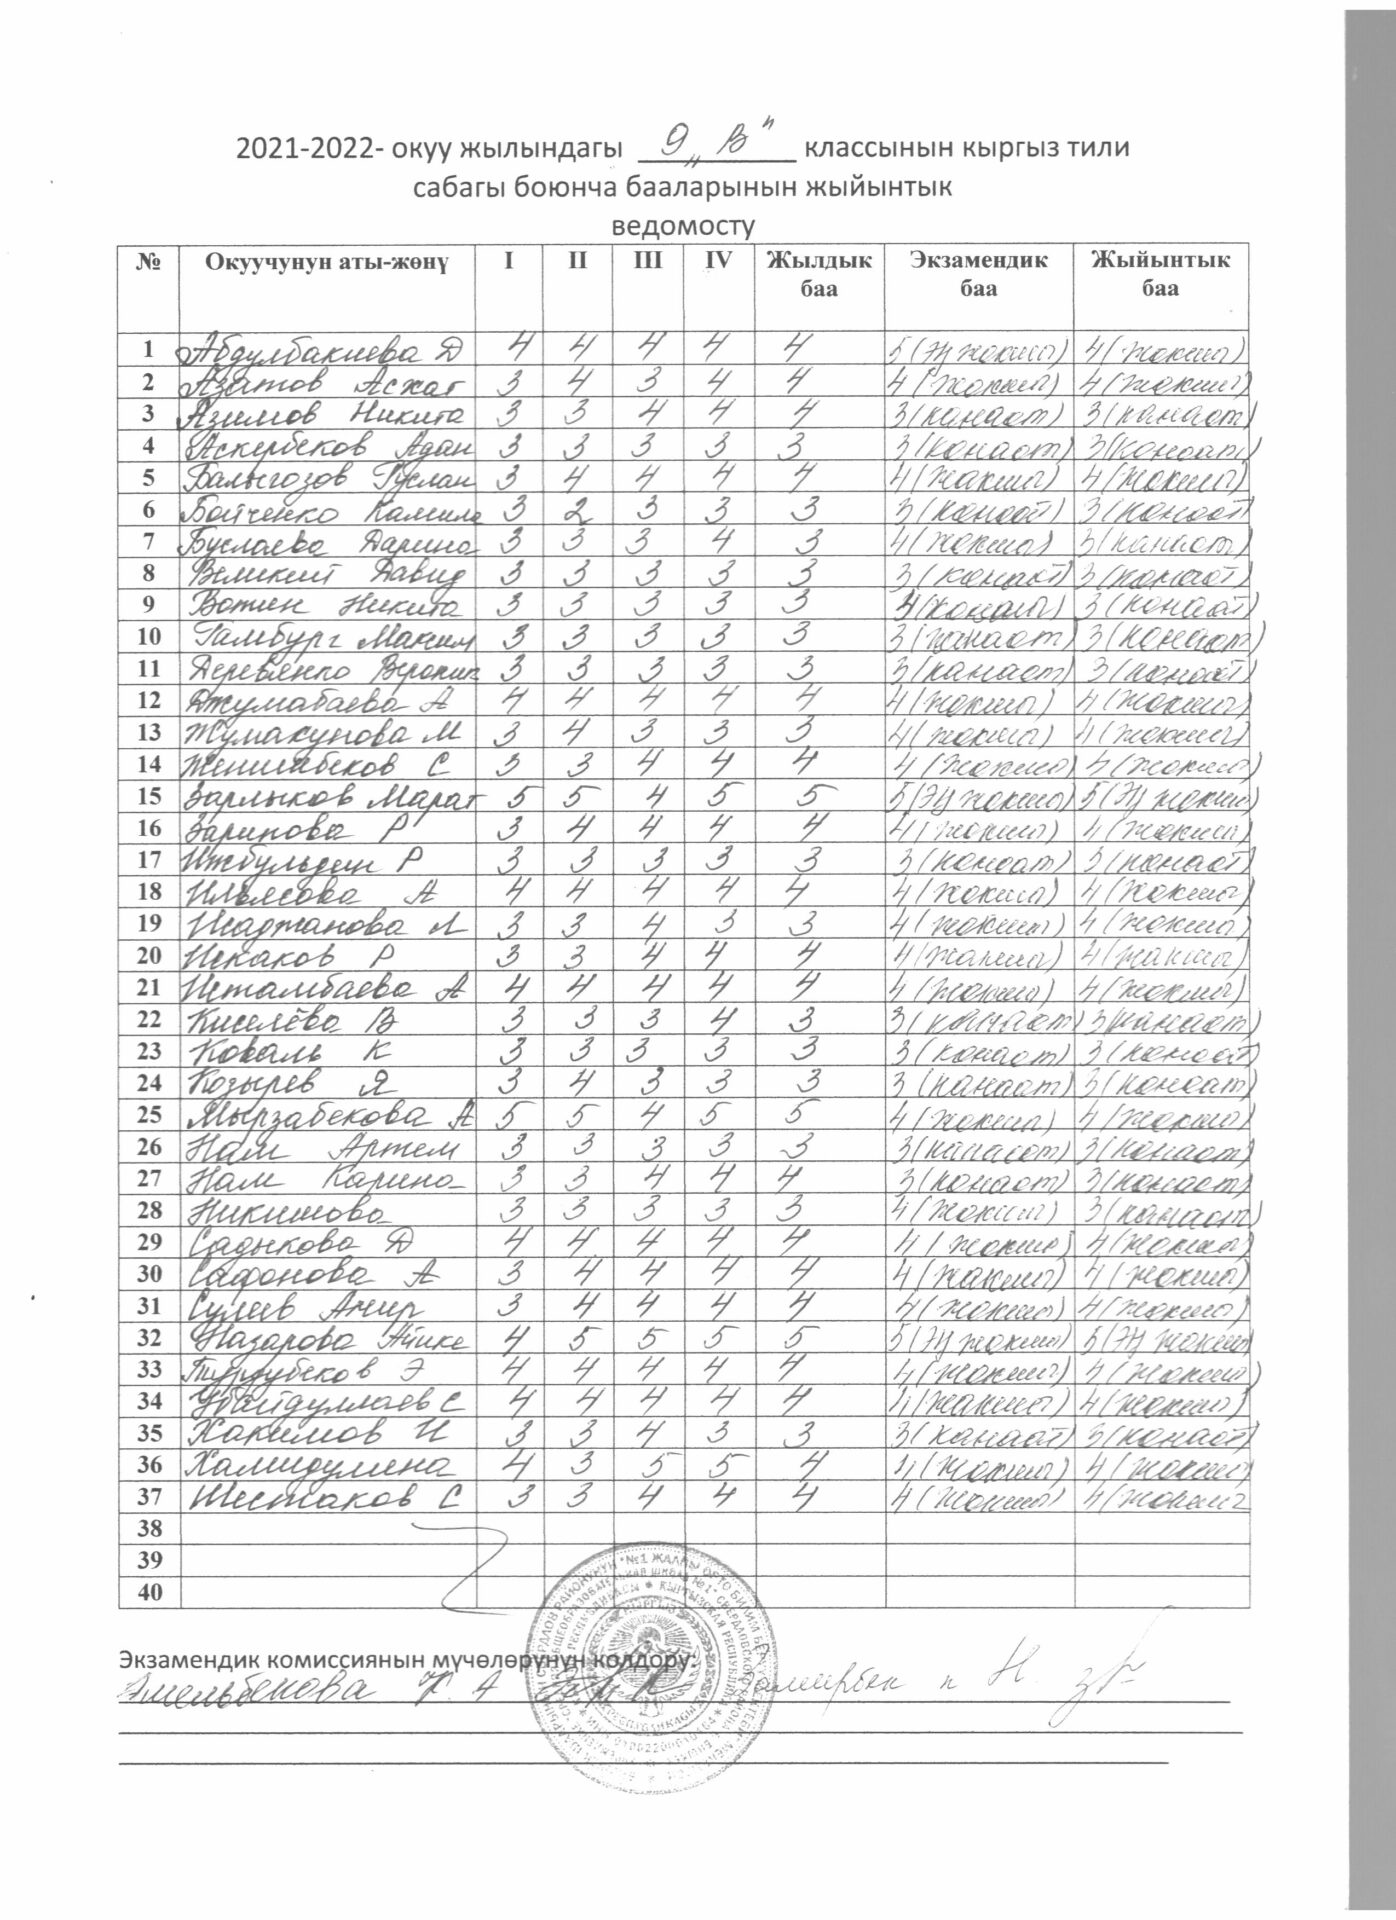 2021-2022- окуу жылындагы 9 „В" классынын кыргыз тили
сабагы боюнча бааларынын жыйынтык
ведомосту
№ Окуучунун аты-жөнү I II III IV Жылдык баа Экзамендик баа Жыйынтык баа
1 Абдулбакиева Д 4 4 4 4 4 5 (Эң жакшы) 4 (жакшы)
2 Азатов Асхат 3 4 3 4 4 4 (жакшы) 4 (жакшы)
3 Азимов Никита 3 3 4 4 4 3 (канаат) 3 (канаат)
4 Аскербеков Адан 3 3 3 3 3 3 (канаат) 3 (канаат)
5 Балыгозов Руслан 3 4 4 4 4 4 (жакшы) 4 (жакшы)
6 Бойченко Камила 3 2 3 3 3 3 (канаат) 3 (канаат)
7 Буслаева Дарина 3 3 3 4 3 4 (жакшы) 3 (канаат)
8 Великий Давид 3 3 3 3 3 3 (канаат) 3 (канаат)
9 Вотин Никита 3 3 3 3 3 (канаат) 3 (канаат)
10 Гамбург Максим 3 3 3 3 3 3 (канаат) 3 (канаат)
11 Деревянко Вероник 3 3 3 3 3 3 (канаат) 3 (канаат)
12 Джумабаева А 4 4 4 4 4 4 (жакшы) 4 (жакшы)
13 Жумакунова М 3 4 3 3 3 4 (жакшы) 4 (жакшы)
14 Женишбеков С 3 3 4 4 4 4 (жакшы) 4 (жакшы)
15 Зарлыков Марат 5 5 4 5 5 5 (Эң жакшы) 5 (Эң жакшы)
16 Зарипова Р 3 4 4 4 4 4 (жакшы) 4 (жакшы)
17 Ижбульдин Р 3 3 3 3 3 3 (канаат) 3 (канаат)
18 Ильясова А 4 4 4 4 4 4 (жакшы) 4 (жакшы)
19 Исаджанова Л 3 3 4 3 3 4 (жакшы) 4 (жакшы)
20 Искаков Р 3 3 4 4 4 4 (жакшы) 4 (жакшы)
21 Истамбаева А 4 4 4 4 4 4 (жакшы) 4 (жакшы)
22 Киселёва В 3 3 3 4 3 3 (канаат) 3 (канаат)
23 Коваль К 3 3 3 3 3 3 (канаат) 3 (канаат)
24 Козырев Я 3 4 3 3 3 3 (канаат) 3 (канаат)
25 Мырзабекова А 5 5 4 5 5 4 (жакшы) 4 (жакшы)
26 Нам Артем 3 3 3 3 3 3 (канаат) 3 (канаат)
27 Нам Карина 3 3 4 4 4 3 (канаат) 3 (канаат)
28 Никишова 3 3 3 3 3 4 (жакшы) 3 (канаат)
29 Садыкова Д 4 4 4 4 4 4 (жакшы) 4 (жакшы)
30 Сафонова А 3 4 4 4 4 4 (жакшы) 4 (жакшы)
31 Сулеев Амир 3 4 4 4 4 4 (жакшы) 4 (жакшы)
32 Назарова Айике 4 5 5 5 5 5 (Эң жакшы) 5 (Эң жакшы)
33 Турдубеков Э 4 4 4 4 4 4 (жакшы) 4 (жакшы)
34 Убайдуллаев С 4 4 4 4 4 4 (жакшы) 4 (жакшы)
35 Хакимов И 3 3 4 3 3 3 (канаат) 3 (канаат)
36 Хамидулина 4 3 5 5 4 4 (жакшы) 4 (жакшы)
37 Шестаков С 3 3 4 4 4 4 (жакшы) 4 (жакшы
38
39
40
Экзамендик комиссиянын мүчөлөрүнүн колдору: